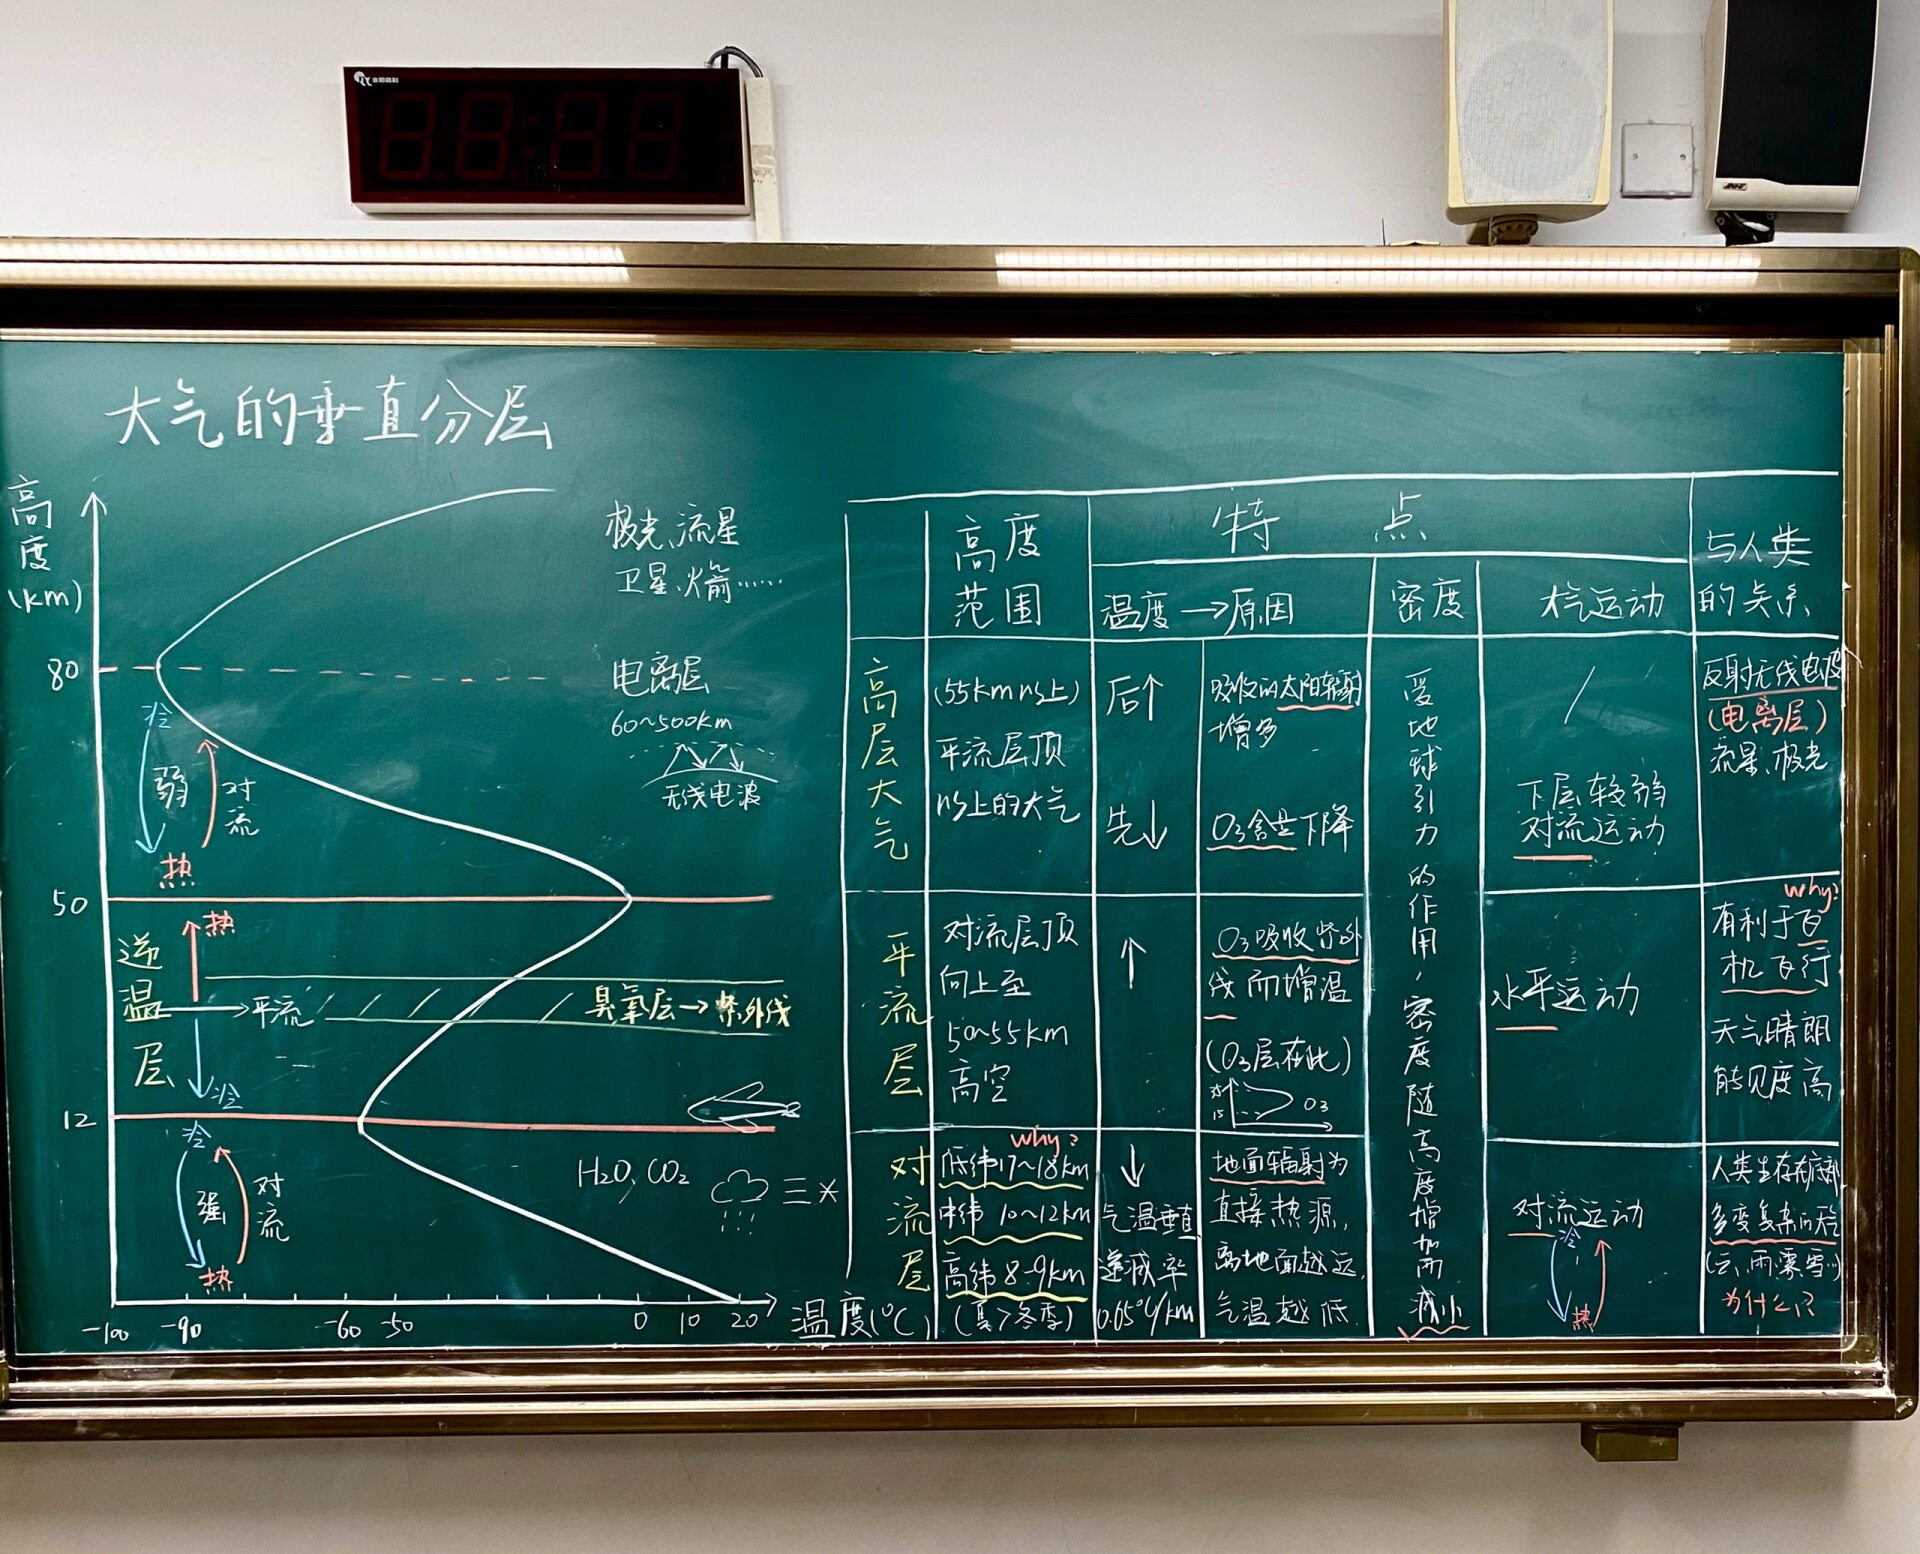 大气的垂直分层
高度
(km)
80
50
12
-100
-90
-60
-50
0
10
20
温度(℃)
极光、流星
卫星、火箭……
电离层
60~500km
无线电波
冷
弱
对流
热
逆温层
热
平流
冷
臭氧层→紫外线
冷
强
对流
热
H2O, CO2
高度
范围
特点
温度→原因
密度
大气运动
与人类
的关系
高层大气
(55km以上)
平流层顶
以上的大气
后↑
先↓
吸收的太阳辐射
增多
O3含量下降
受地球引力的作用，密度随高度增加而减小
/
下层较弱
对流运动
反射无线电波
(电离层)
流星、极光
平流层
对流层顶
向上至
50~55km
高空
↑
O3吸收紫外
线而增温
(O3层在此)
15
O3
水平运动
why?
有利于飞
机飞行
天气晴朗
能见度高
对流层
why?
低纬17~18km
中纬10~12km
高纬8-9km
(夏>冬季)
↓
气温垂直
递减率
0.65℃/km
地面辐射为
直接热源,
离地面越远,
气温越低.
对流运动
冷
热
人类生存在底部
多变复杂的天气
(云、雨、雾、雪…)
为什么?